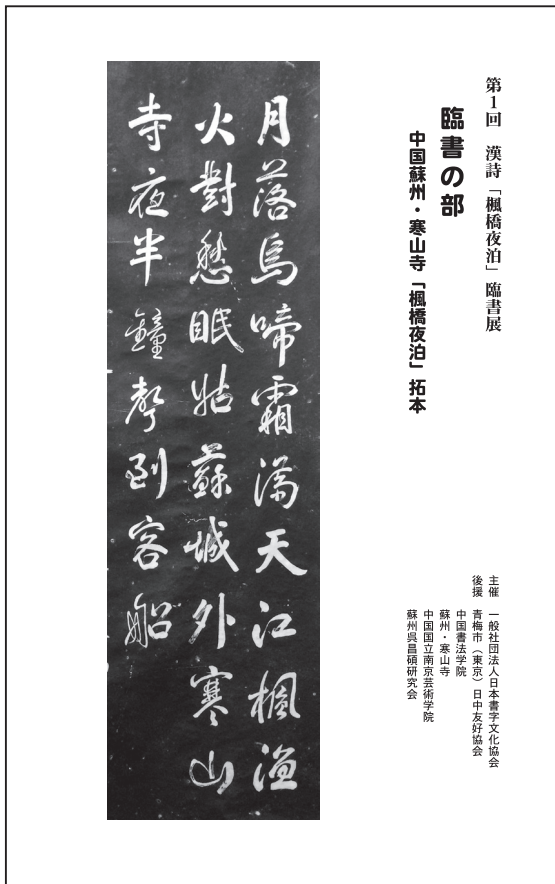 第1回　漢詩「楓橋夜泊」臨書展
臨書の部
中国蘇州・寒山寺「楓橋夜泊」拓本
主催　一般社団法人日本書字文化協会
後援　青梅市（東京）日中友好協会
中国書法学院
蘇州・寒山寺
中国国立南京芸術学院
蘇州呉昌碩研究会
月落烏啼霜満天江楓漁
火對愁眠姑蘇城外寒山
寺夜半鐘聲到客船